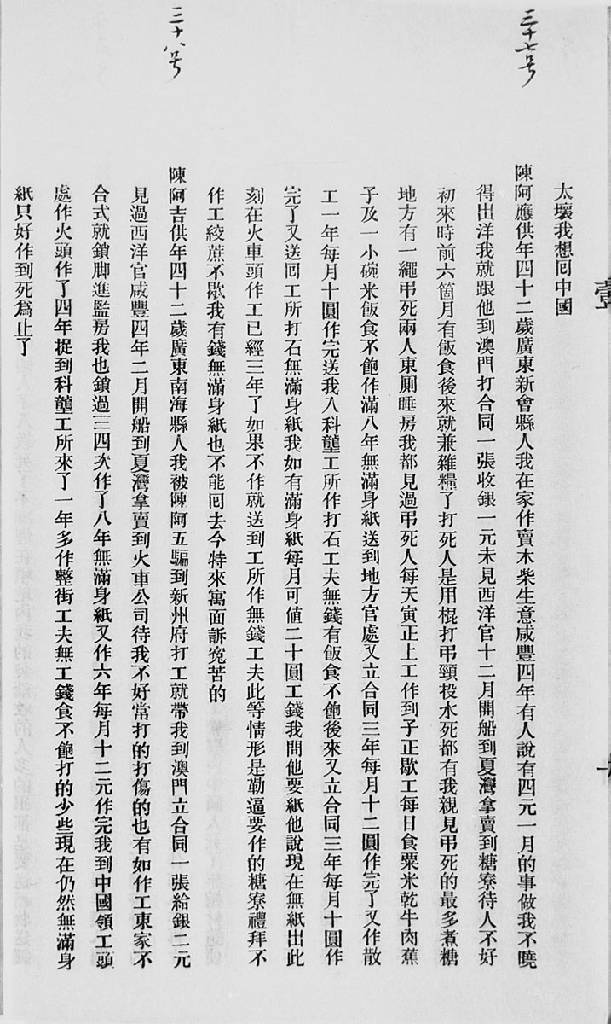 三十七号
太壞我想回中國
陳阿嬔供年四十二歲廣東新會縣人我在家作賣木柴生意咸豐四年有人說有四元一月的事做我不曉
得出洋我就跟他到澳門打合同一張收銀一元未見西洋官十二月開船到夏灣拿賣到糖寮待人不好
初來時前六箇月有飯食後來就兼雜糧了打死人是用棍打弔頸投水死都有我親見弔死的最多煮糖
地方有一繩弔死兩人東厠睡房我都見過弔死人每天寅正上工作到子正歇工每日食粟米乾牛肉蕉
子及一小碗米飯食不飽作滿八年無滿身紙送到地方官處又立合同三年每月十二圓作完了又作散
工一年每月十圓作完送我入科壟工所作打石工夫無錢有飯食不飽後來又立合同三年每月十圓作
完了又送囘工所打石無滿身紙我如有滿身紙每月可値二十圓工錢我問他要紙他說現在無紙出此
刻在火車頭作工已經三年了如果不作就送到工所作無錢工夫此等情形是勒逼要作的糖寮禮拜不
作工絞蔗不歇我有錢無滿身紙也不能囘去今特來寓面訴寃苦的
三十八号
陳阿吉供年四十二歲廣東南海縣人我被陳阿五騙到新州府打工就帶我到澳門立合同一張給銀二元
見過西洋官咸豐四年二月開船到夏灣拿賣到火車公司待我不好當打的打傷的也有如作工東家不
合式就鎖脚進監房我也鎖過三四次作了八年無滿身紙又作六年每月十二元作完我到中國領工頭
處作火頭作了四年捉到科壟工所來了一年多作整街工夫無工錢食不飽打的少些現在仍然無滿身
紙只好作到死爲止了